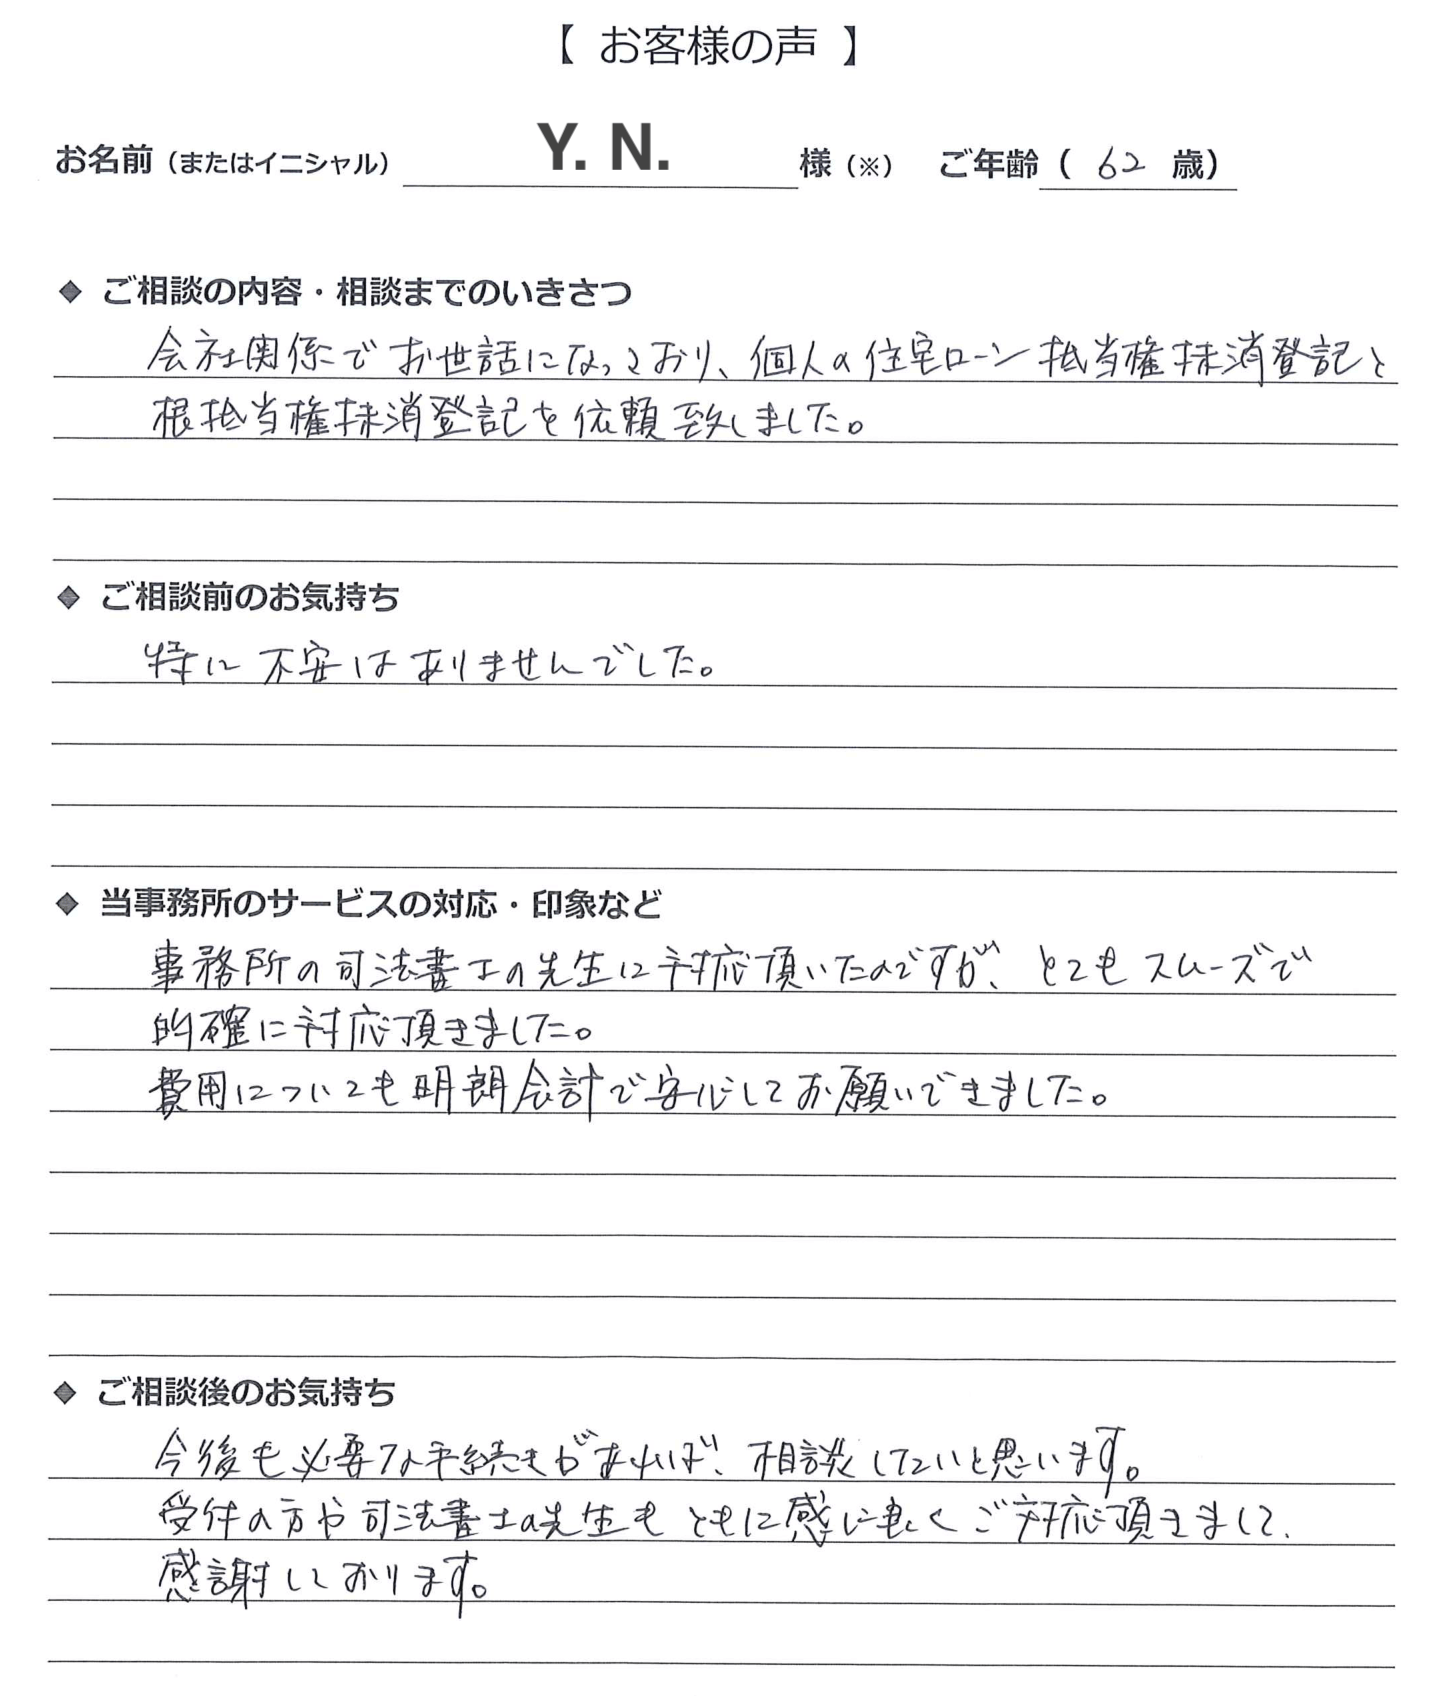 【 お客様の声 】
お名前（またはイニシャル） Y. N. 様（※） ご年齢（ 62 歳）
◆ ご相談の内容・相談までのいきさつ
会社関係でお世話になっており、個人の住宅ローン抵当権抹消登記と
根抵当権抹消登記を依頼致しました。
◆ ご相談前のお気持ち
特に不安はありませんでした。
◆ 当事務所のサービスの対応・印象など
事務所の司法書士の先生に対応頂いたのですが、とてもスムーズで
的確に対応頂きました。
費用についても明朗会計で安心してお願いできました。
◆ ご相談後のお気持ち
今後も必要な手続きがあれば、相談したいと思います。
受付の方や司法書士の先生もともに感じ良くご対応頂きまして、
感謝しております。